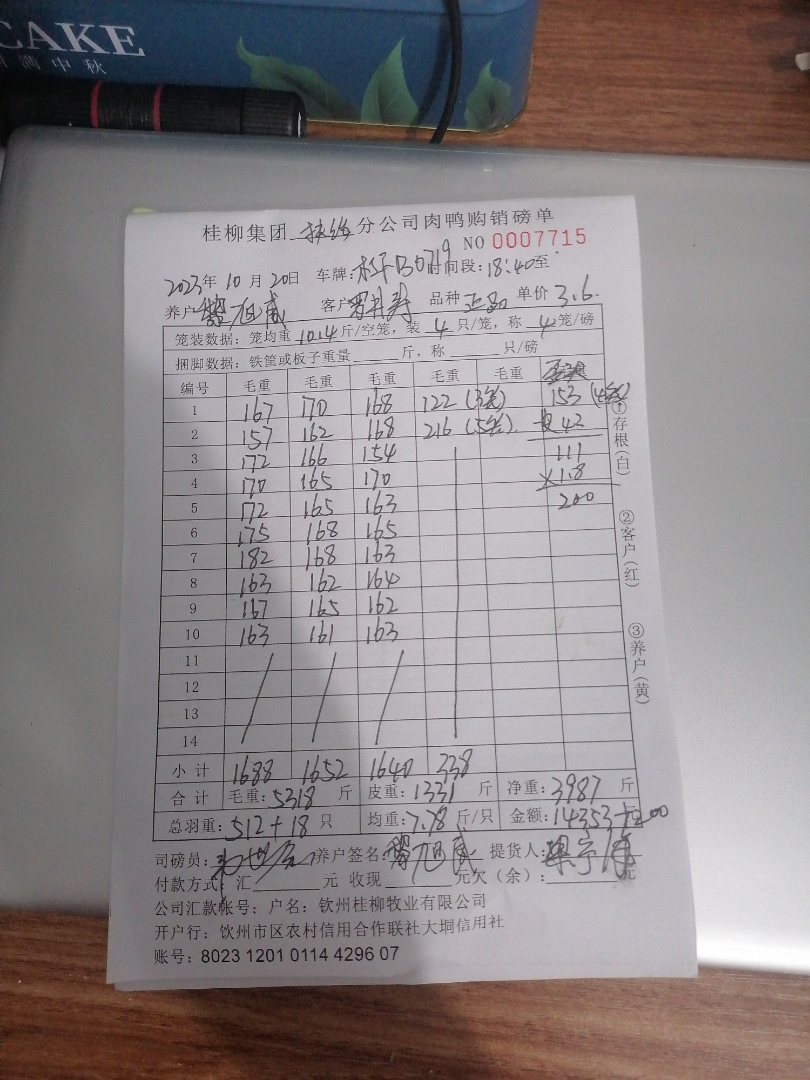 CAKE
满中秋
桂柳集团 分公司肉鸭购销磅单
NO 0007715
2023年 10月 20日 车牌: B0719 时间段: 18:40至
养户 旭威 客户 品种 正品 单价 3.6.
笼装数据: 笼均重 10.4 斤/空笼, 装 4 只/笼, 称 4 笼/磅
捆脚数据: 铁筐或板子重量 斤, 称 只/磅
编号 毛重 毛重 毛重 毛重 毛重
1 167 170 168 122 (3笼) 153 (4笼)
2 157 162 168 216 (5笼) 42
3 172 166 154 111
4 170 165 170 ×1.8
5 172 165 163 200
6 175 168 165
7 182 168 163
8 163 162 164
9 167 165 162
10 163 161 163
11
12
13
14
小计 1688 1652 1640 338
合计 毛重: 5318 斤 皮重: 1331 斤 净重: 3987 斤
总羽重: 512+18 只 均重: 7.78 斤/只 金额: 14353+200
司磅员: 养户签名: 旭威 提货人:
付款方式: 汇 元 收现 元欠(余): 元
公司汇款帐号: 户名: 钦州桂柳牧业有限公司
开户行: 饮州市区农村信用合作联社大垌信用社
账号: 8023 1201 0114 4296 07
①存根(白)
②客户(红)
③养户(黄)